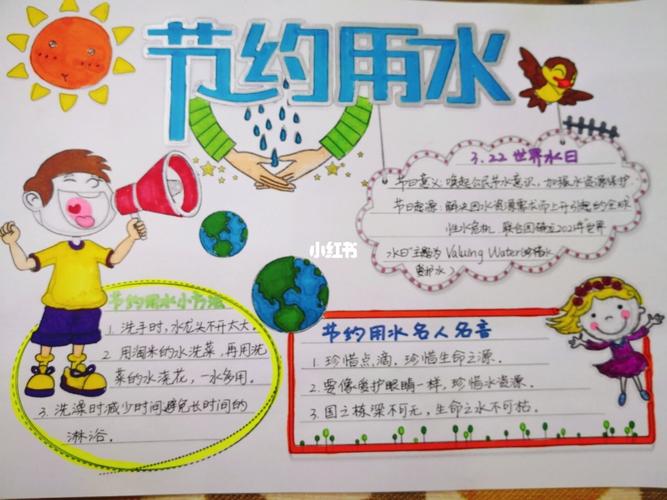 节约用水
3.22 世界水日
节日意义：唤起公民节水意识，加强水资源保护.
节日起源：解决因水资源需求而上升引起的全球
性水危机，联合国确立2021年世界
水日"主题为 Valuing Water（珍惜水
爱护水）
小红书
节约用水小方法
1. 洗手时，水龙头不开太大。
2. 用淘米的水洗菜，再用洗
菜的水浇花，一水多用.
3. 洗澡时减少时间避免长时间的
淋浴。
节约用水名人名言
1. 珍惜点滴，珍惜生命之源.
2. 要像爱护眼睛一样，珍惜水资源.
3. 国之栋梁不可无，生命之水不可枯.